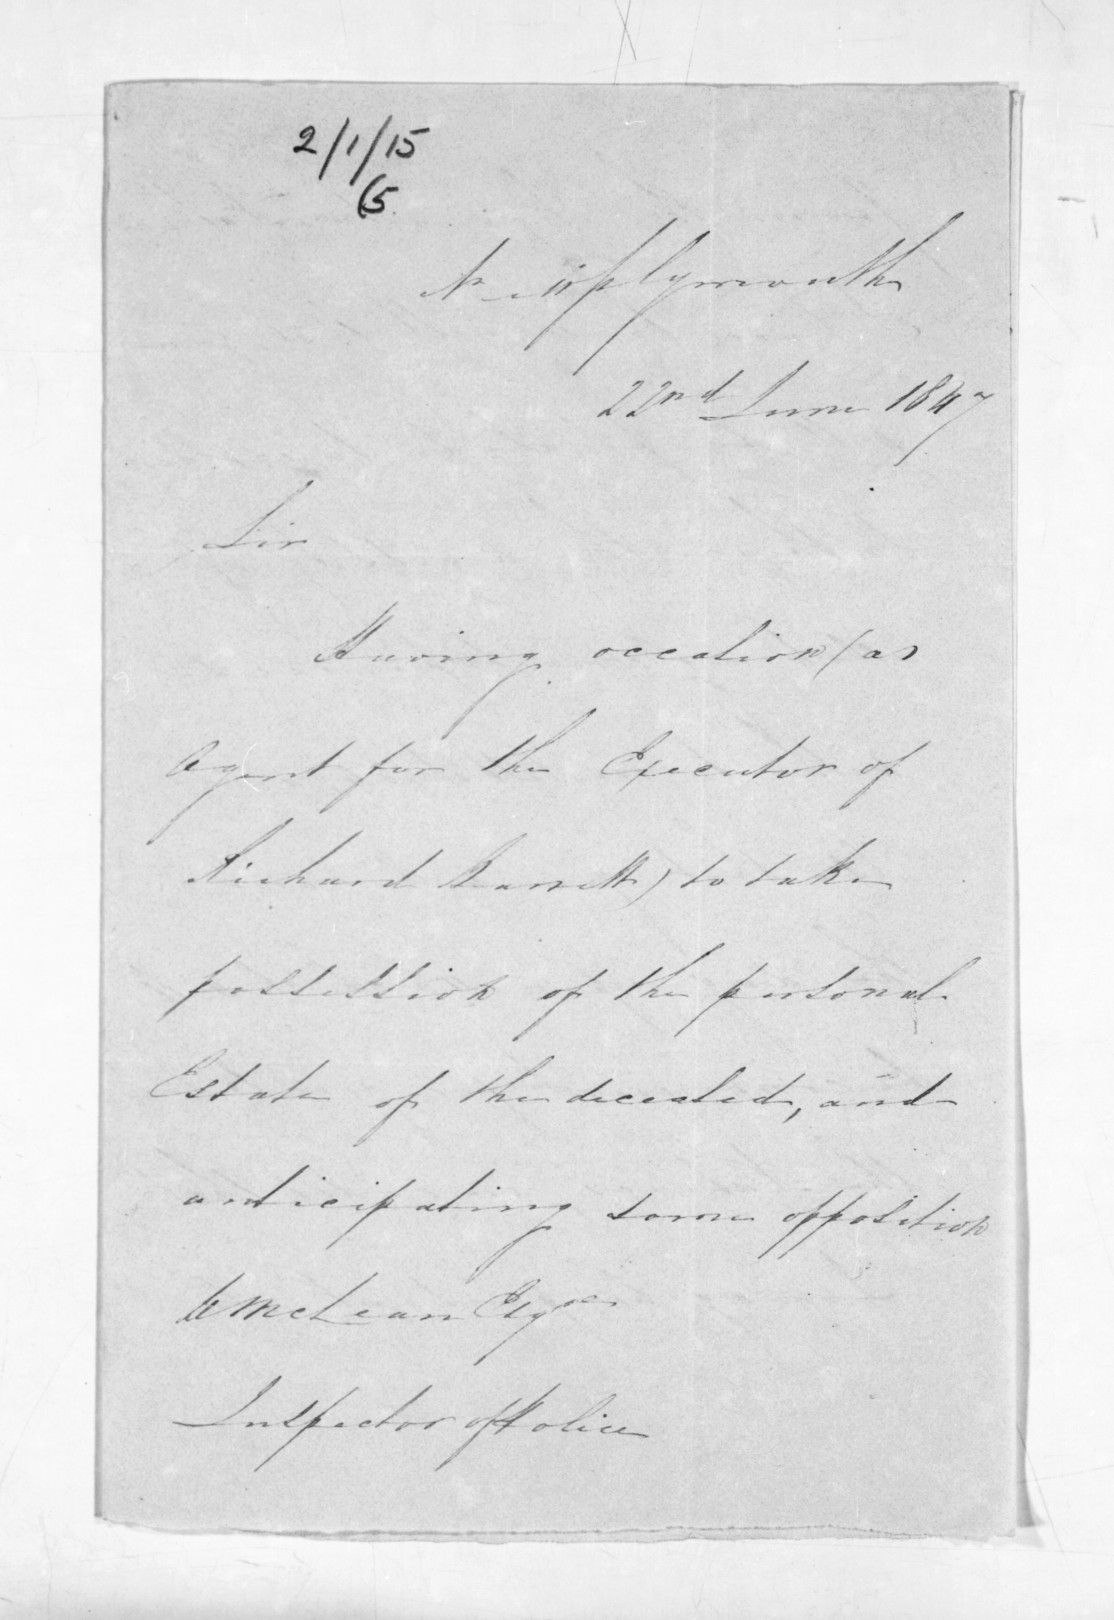 2/1/15
(5.
New Plymouth
22nd June 1847
Sir
Having occasion (as
Agent for the Executor of
Richard Barrett) to take
possession of the personal
Estate of the deceased, and
anticipating some opposition
McLean Esqre
Inspector of Police